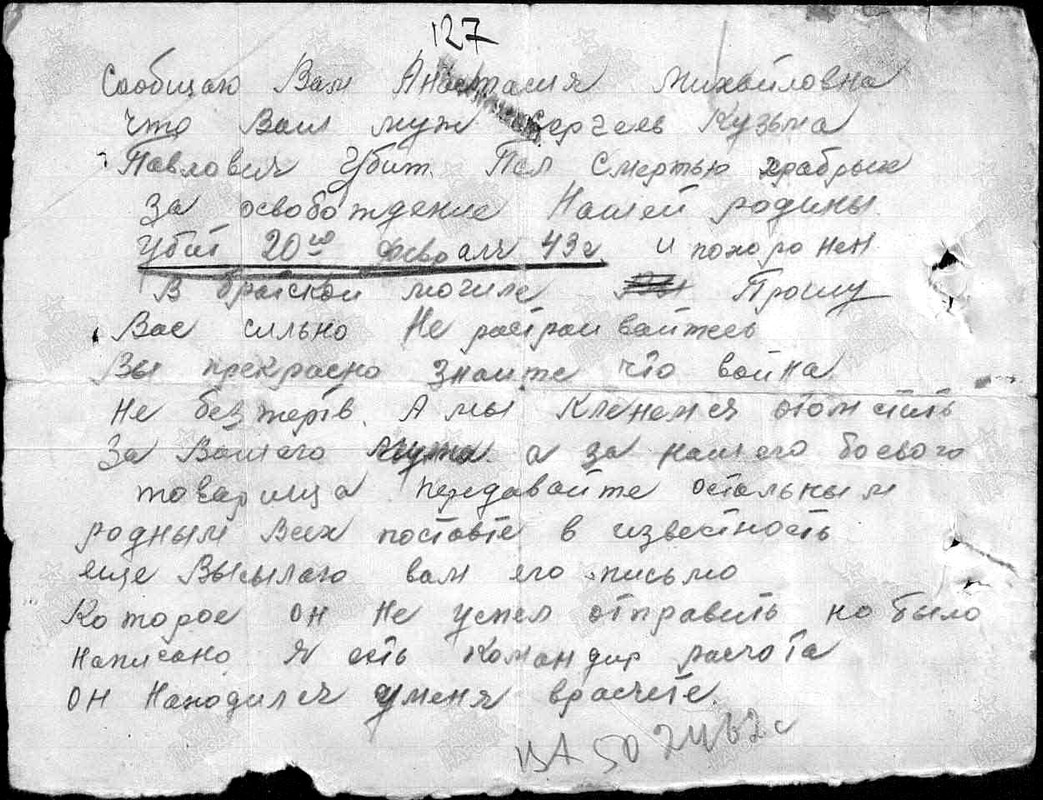 127
Сообщаю Вам Анастасия Михайловна
что Ваш муж Сергеев Кузьма
Павлович Убит. Пал Смертью храбрых
За освобождение Нашей родины.
Убит 20го февраля 43г и похоронен
В братской могиле Прошу
Вас сильно Не растраивайтесь
Вы прекрасно знаите что война
Не без жертв. А мы Кленемся отомстить
За Вашего мужа а за нашего боевого
товарища Передавайте остальным
родным Всех поставте в известность
еще Высылаю вам его письмо
Которое он Не успел отправить но было
Написано Я есть Командир расчота
он Находился уменя врасчете.